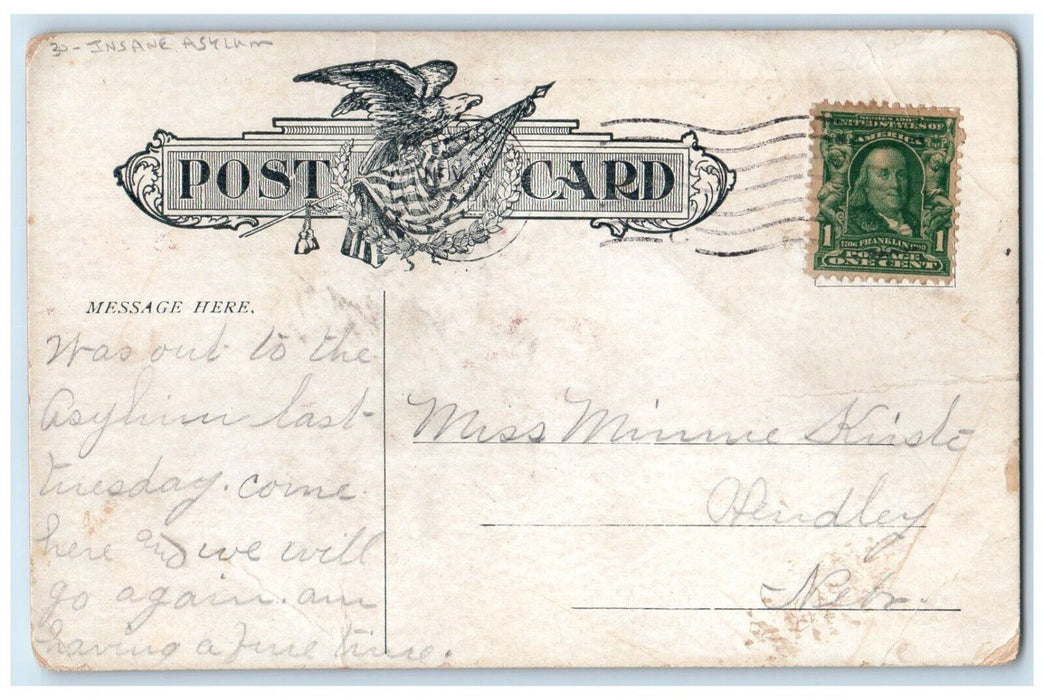 30 - INSANE ASYLUM
POST CARD
SERIES 1902
UNITED STATES OF
AMERICA
1 1
1706 FRANKLIN 1790
POSTAGE
ONE CENT
MESSAGE HERE.
Was out to the
Asylum last
tuesday. come
here and we will
go again. am
having a fine time.
Miss Minnie
Hendley
Nebr.